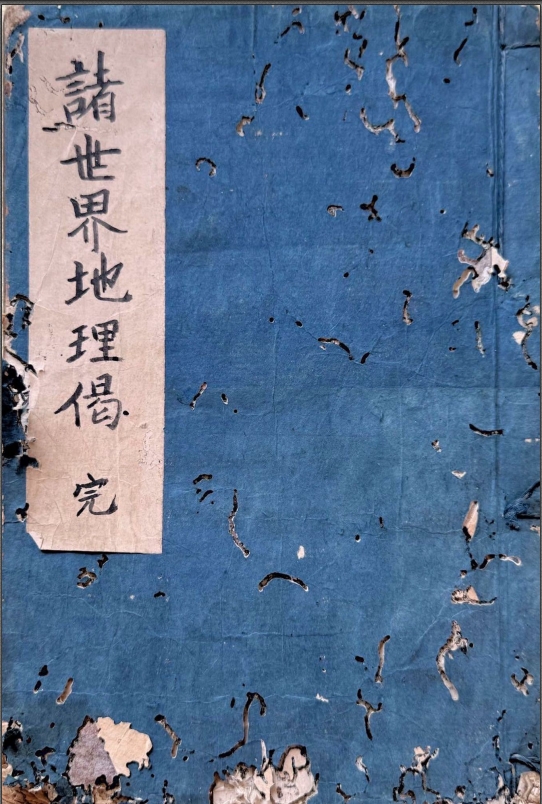 諸世界地理偈 完